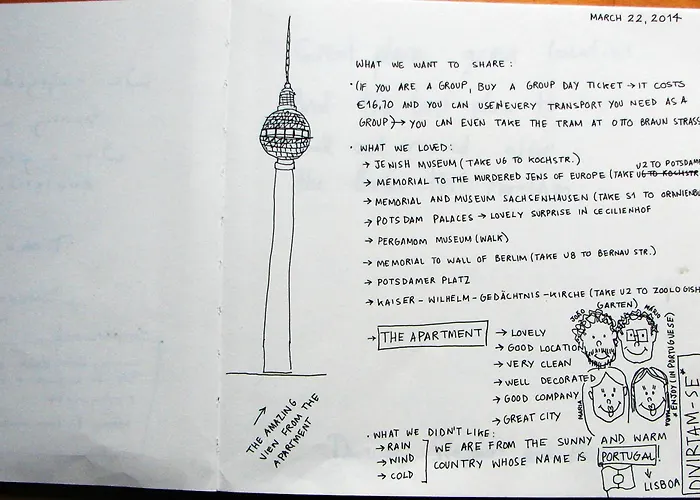 MARCH 22, 2014
WHAT WE WANT TO SHARE:
• (IF YOU ARE A GROUP, BUY A GROUP DAY TICKET → IT COSTS
€16,70 AND YOU CAN USE IN EVERY TRANSPORT YOU NEED AS A
GROUP) → YOU CAN EVEN TAKE THE TRAM AT OTTO BRAUN STRASS
• WHAT WE LOVED:
→ JEWISH MUSEUM (TAKE U6 TO KOCHSTR.)
U2 TO POTSDAM
→ MEMORIAL TO THE MURDERED JEWS OF EUROPE (TAKE U6 TO KOCHSTR
→ MEMORIAL AND MUSEUM SACHSENHAUSEN (TAKE S1 TO ORANIENBU
→ POTSDAM PALACES → LOVELY SURPRISE IN CECILIENHOF
→ PERGAMOM MUSEUM (WALK)
→ MEMORIAL TO WALL OF BERLIM (TAKE U8 TO BERNAU STR.)
→ POTSDAMER PLATZ
→ KAISER - WILHELM - GEDÄCHTNIS - KIRCHE (TAKE U2 TO ZOOLOGISH
GARTEN)
→ THE APARTMENT
→ LOVELY
→ GOOD LOCATION
→ VERY CLEAN
→ WELL DECORATED
→ GOOD COMPANY
→ GREAT CITY
JOÃO
MÁRIO
MARIA
* ENJOY (IN PORTUGUESE)
DIVIRTAM-SE*
→ THE AMAZING
VIEW FROM THE
APARTMENT
• WHAT WE DIDN'T LIKE:
→ RAIN
→ WIND
→ COLD
WE ARE FROM THE SUNNY AND WARM
COUNTRY WHOSE NAME IS PORTUGAL!
↓
LISBOA